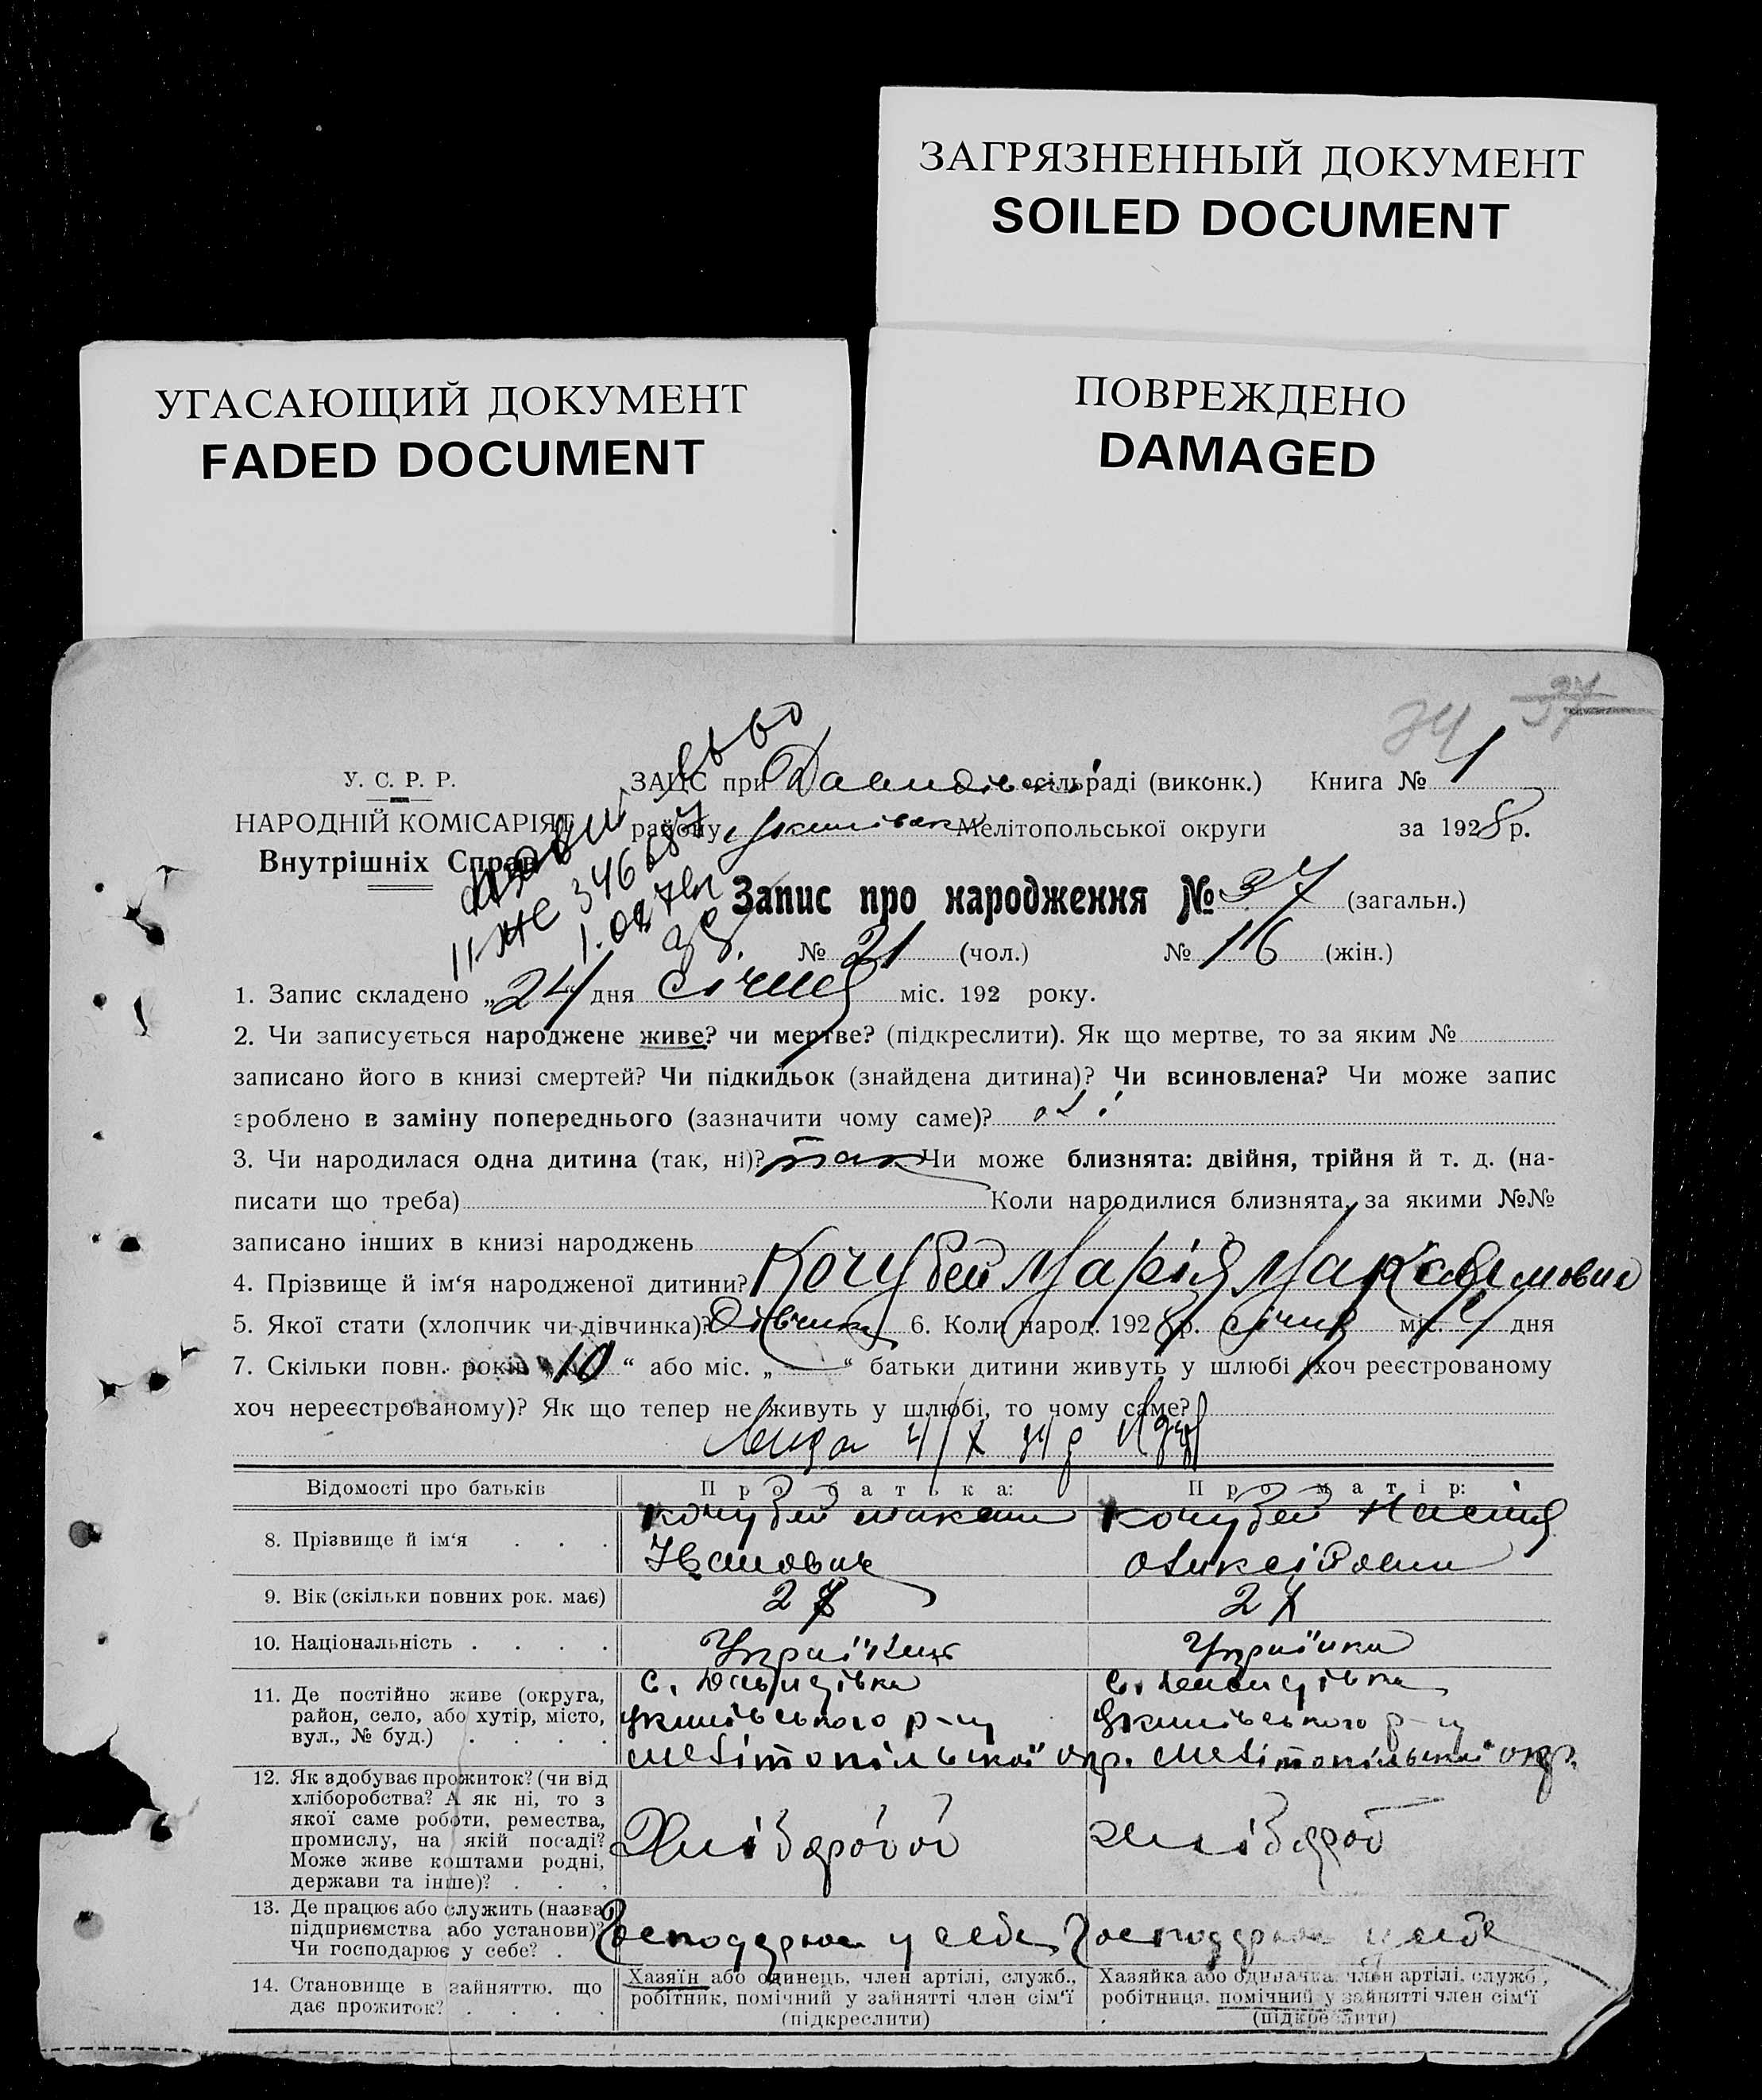 ЗАГРЯЗНЕННЫЙ ДОКУМЕНТ
SOILED DOCUMENT
УГАСАЮЩИЙ ДОКУМЕНТ
FADED DOCUMENT
ПОВРЕЖДЕНО
DAMAGED
34 37
У. С. Р. Р.
НАРОДНІЙ КОМІСАРІЯТ
Внутрішніх Справ
ЗАЦС при Давидівськ сільраді (виконк.) Книга № 1
району Якимівськ Мелітопольської округи за 1928 р.
Запис про народження № 37 (загальн.)
№ 21 (чол.) № 16 (жін.)
1. Запис складено „24“ дня січня міс. 192 року.
2. Чи записується народжене живе? чи мертве? (підкреслити). Як що мертве, то за яким №
записано його в книзі смертей? Чи підкидьок (знайдена дитина)? Чи всиновлена? Чи може запис
зроблено в заміну попереднього (зазначити чому саме)?
3. Чи народилася одна дитина (так, ні)? так Чи може близнята: двійня, трійня й т. д. (на-
писати що треба) Коли народилися близнята, за якими №№
записано інших в книзі народжень
4. Прізвище й ім‘я народженої дитини? Кочубей Марія Максимовна
5. Якої стати (хлопчик чи дівчинка)? Дівчинка 6. Коли народ. 1928 р. січня міс. 14 дня
7. Скільки повн. років „10“ або міс. „ “ батьки дитини живуть у шлюбі (хоч реєстрованому
хоч нереєстрованому)? Як що тепер не живуть у шлюбі, то чому саме?
Відомості про батьків Про батька: Про матір:
8. Прізвище й ім‘я . . . Кочубей Максим Кочубей Настія
Іванович Олексіовна
9. Вік (скільки повних рок. має) 27 27
10. Національність . . . . Українець Українка
11. Де постійно живе (округа, с. Давидівка с. Давидівка
район, село, або хутір, місто, Якимівського р-ну Якимівського р-ну
вул., № буд.) . . . . Мелітопільської окр. Мелітопільської окр.
12. Як здобуває прожиток? (чи від
хліборобства? А як ні, то з
якої саме роботи, ремества,
промислу, на якій посаді? Хлібороб Хлібороб
Може живе коштами родні,
держави та інше)? . . .
13. Де працює або служить (назва
підприємства або установи)? Господарює у себе Господарює у себе
Чи господарює у себе? .
14. Становище в зайняттю, що Хазяїн або одинець, член артілі, служб., Хазяйка або одиначка, член артілі, служб.,
дає прожиток? . . . . робітник, помічний у зайнятті член сім‘ї робітниця, помічний у зайнятті член сім‘ї
(підкреслити) (підкреслити)